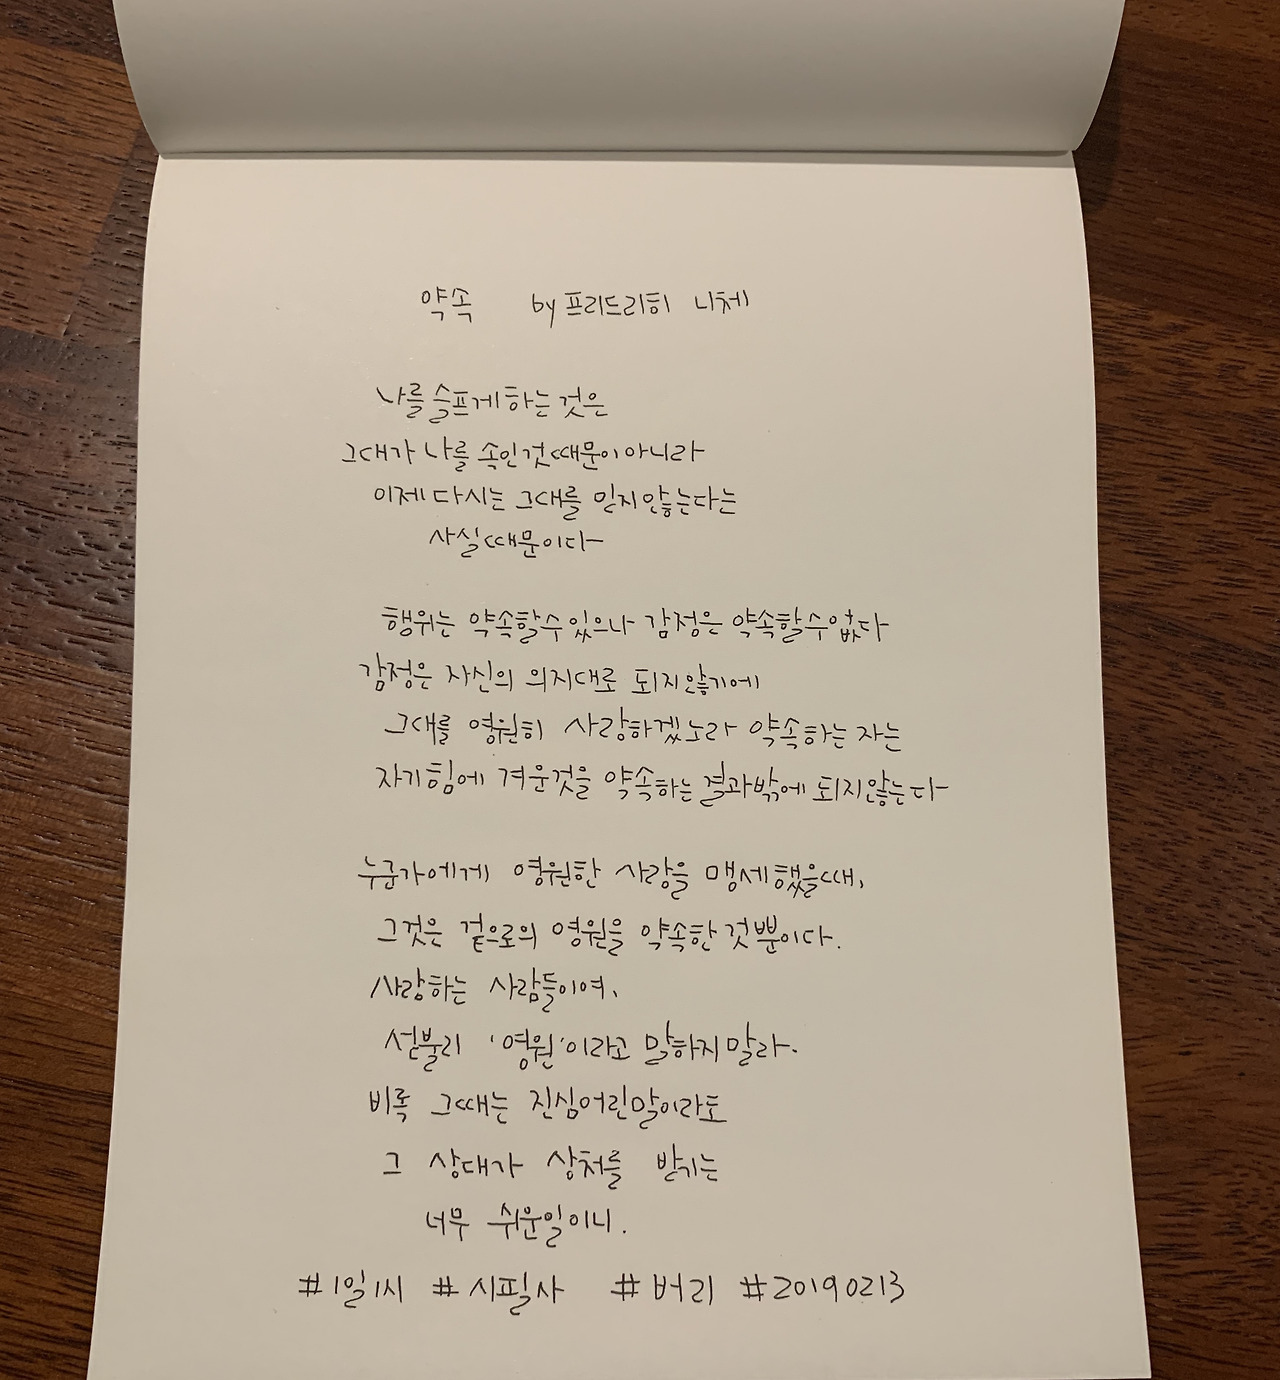 약속 by 프리드리히 니체
나를 슬프게 하는 것은
그대가 나를 속인것 때문이 아니라
이제 다시는 그대를 믿지 않는다는
사실 때문이다
행위는 약속할 수 있으나 감정은 약속할 수 없다
감정은 자신의 의지대로 되지 않기에
그대를 영원히 사랑하겠노라 약속하는 자는
자기 힘에 겨운것을 약속하는 결과밖에 되지 않는다
누군가에게 영원한 사랑을 맹세했을때,
그것은 겉으로의 영원을 약속한 것뿐이다.
사랑하는 사람들이여,
섣불리 '영원'이라고 말하지 말라.
비록 그때는 진심어린 말이라도
그 상대가 상처를 받기는
너무 쉬운일이니.
#1일1시 #시필사 #버리 #20190213